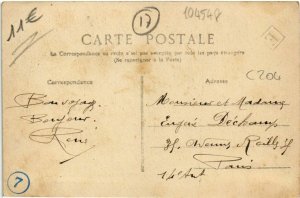 11€
17
104548
CARTE POSTALE
La Correspondance au recto n'est pas acceptée par tous les pays étrangers
(Se renseigner à la Poste)
Correspondance
Adresse
C204
Bon voyage
Bonjour
Monsieur et Madame
Eugène Déchamp
Avenue Reilly
Paris
14e Arrt
7